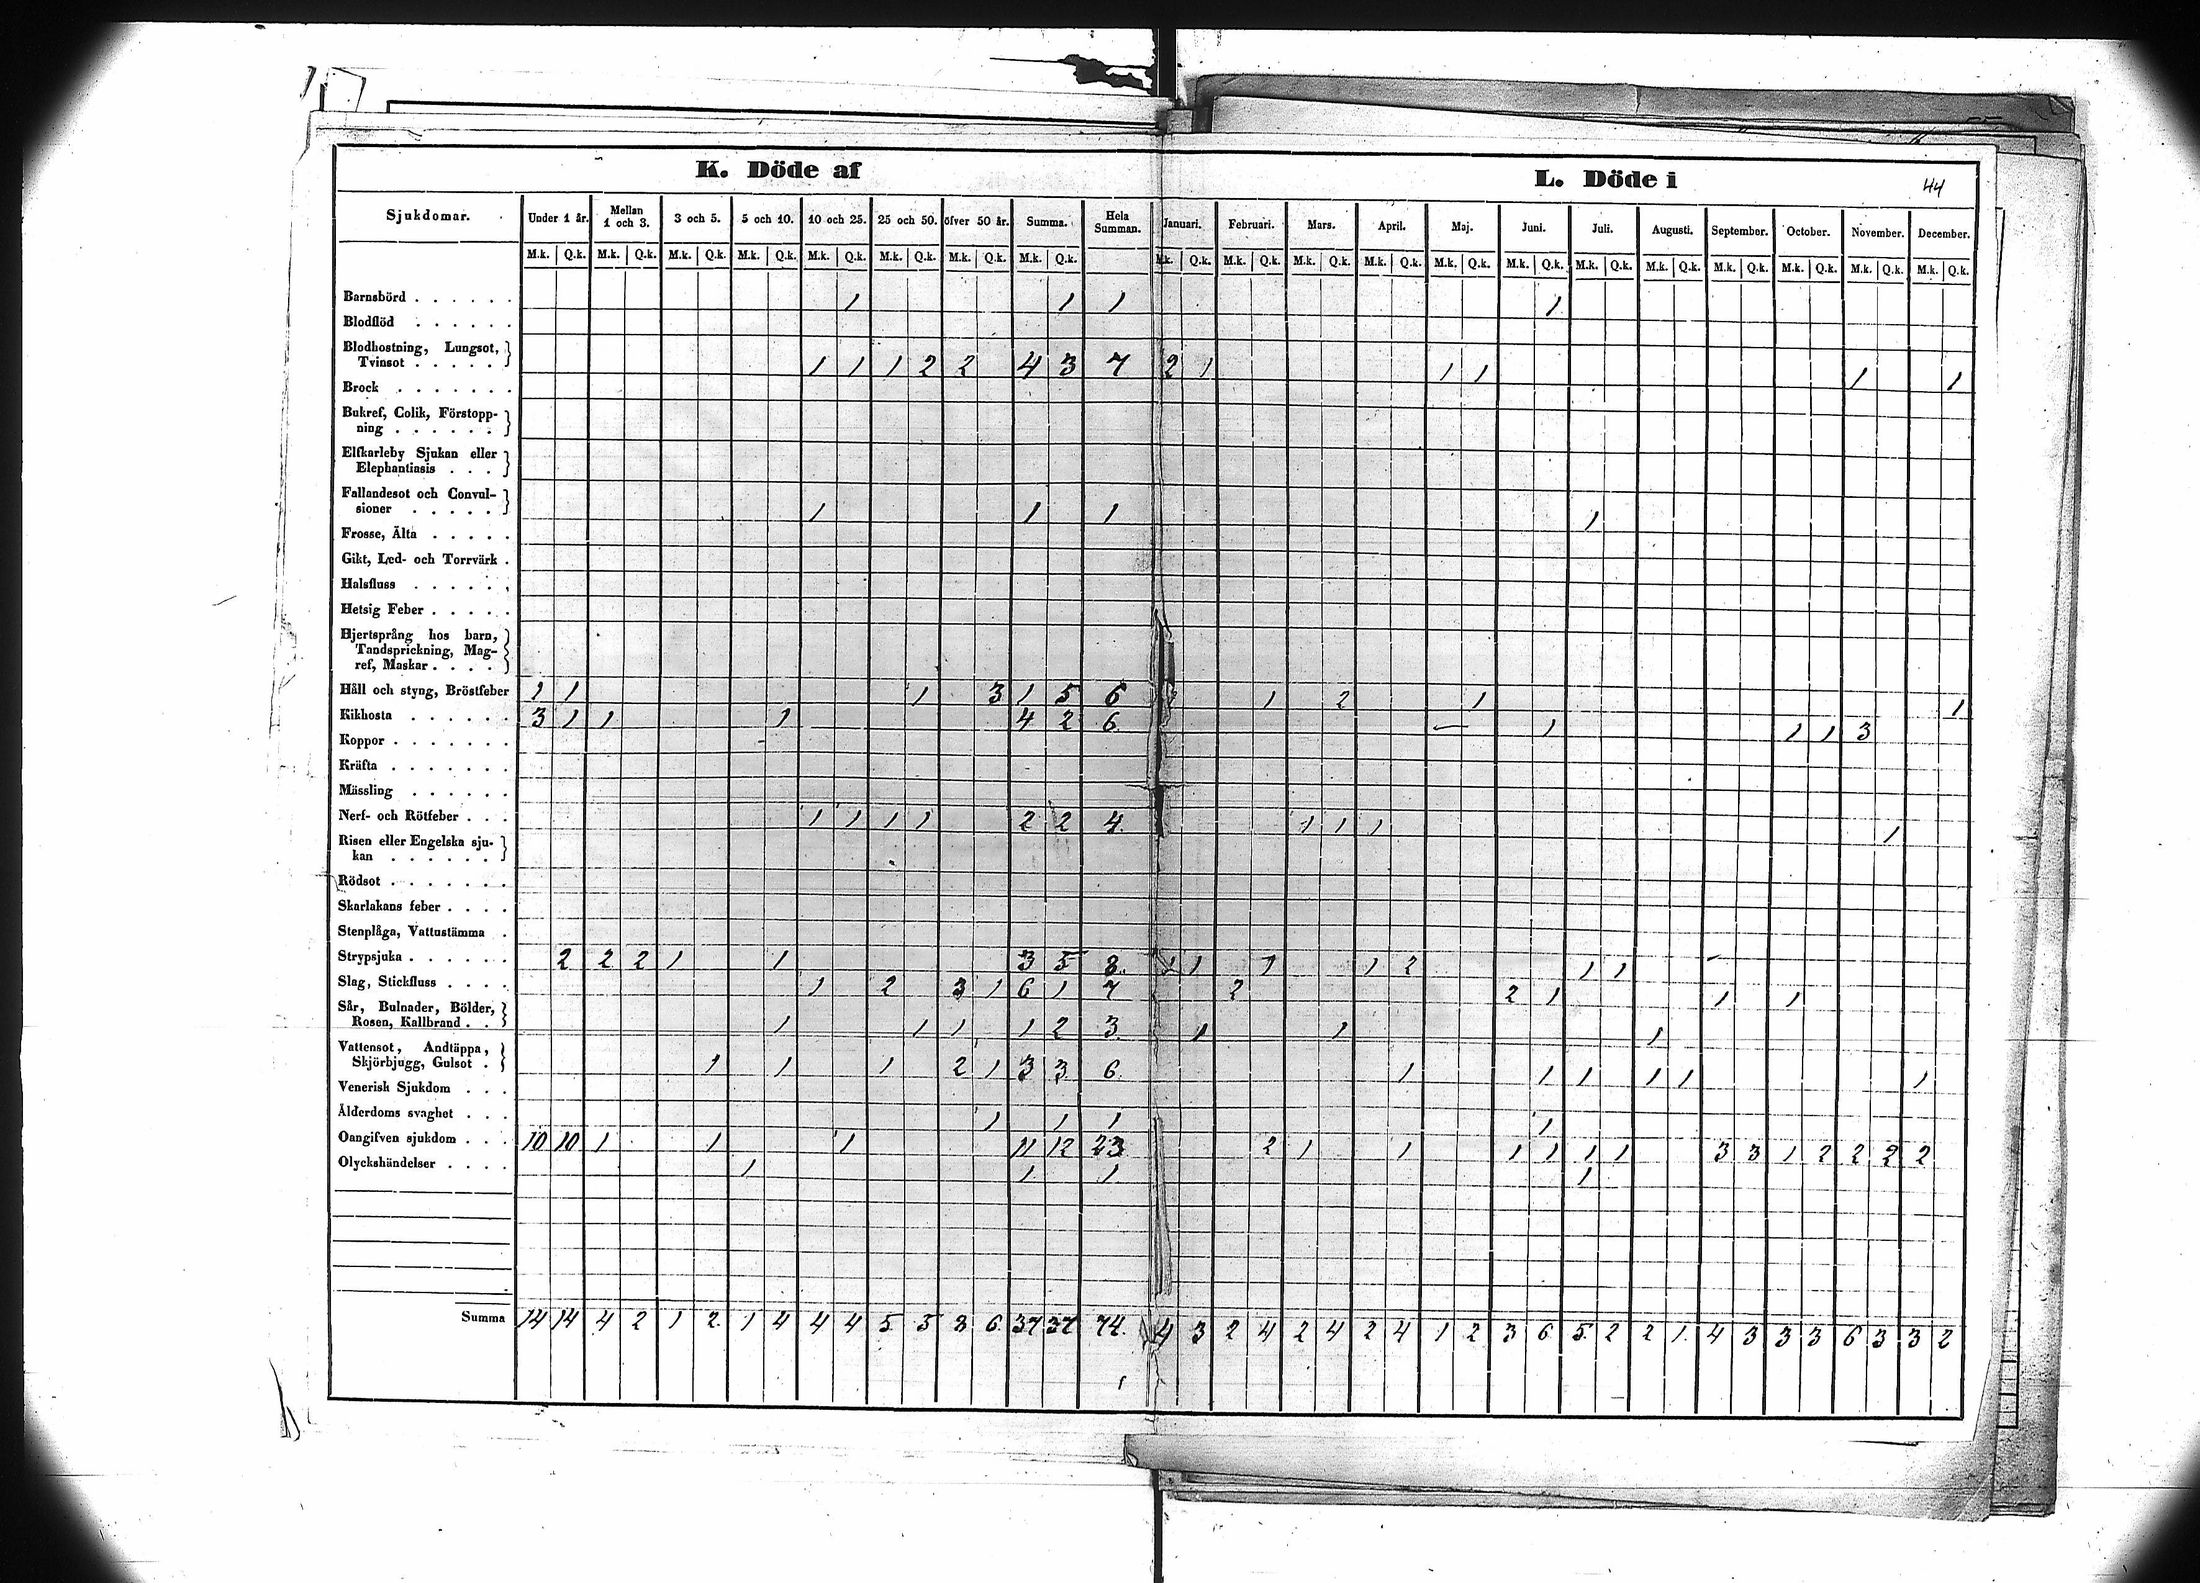 K. Döde af
L. Döde i
44
Sjukdomar. Under 1 år. Mellan 1 och 3. 3 och 5. 5 och 10. 10 och 25. 25 och 50. öfver 50 år. Summa. Hela Summan. Januari. Februari. Mars. April. Maj. Juni. Juli. Augusti. September. October. November. December.
M.k. Q.k. M.k. Q.k. M.k. Q.k. M.k. Q.k. M.k. Q.k. M.k. Q.k. M.k. Q.k. M.k. Q.k. M.k. Q.k. M.k. Q.k. M.k. Q.k. M.k. Q.k. M.k. Q.k. M.k. Q.k. M.k. Q.k. M.k. Q.k. M.k. Q.k. M.k. Q.k. M.k. Q.k. M.k. Q.k.
Barnsbörd . . . . . . 1 1 1 1
Blodflöd . . . . . .
Blodhostning, Lungsot,
Tvinsot . . . . . 1 1 1 2 2 4 3 7 2 1 1 1 1 1
Brock . . . . . . .
Bukref, Colik, Förstopp-
ning . . . . . .
Elfkarleby Sjukan eller
Elephantiasis . . .
Fallandesot och Convul-
sioner . . . . . 1 1 1 1
Frosse, Älta . . . . .
Gikt, Led- och Torrvärk .
Halsfluss . . . . . .
Hetsig Feber . . . . .
Hjertsprång hos barn,
Tandsprickning, Mag-
ref, Maskar . . . .
Håll och styng, Bröstfeber 1 1 1 3 1 5 6 1 2 1 1
Kikhosta . . . . . . 3 1 1 1 4 2 6 1 1 1 3
Koppor . . . . . . .
Kräfta . . . . . . .
Mässling . . . . . .
Nerf- och Rötfeber . . . 1 1 1 1 2 2 4. 1 1 1 1
Risen eller Engelska sju-
kan . . . . . .
Rödsot . . . . . . .
Skarlakans feber . . . .
Stenplåga, Vattustämma .
Strypsjuka . . . . . . 2 2 2 1 1 3 5 8. 1 1 1 2 1 1
Slag, Stickfluss . . . . 1 2 3 1 6 1 7 2 2 1 1 1
Sår, Bulnader, Bölder,
Rosen, Kallbrand . . 1 1 1 1 2 3. 1 1 1
Vattensot, Andtäppa,
Skjörbjugg, Gulsot . 1 1 1 2 1 3 3 6. 1 1 1 1 1 1
Venerisk Sjukdom . . .
Ålderdoms svaghet . . . 1 1 1 1
Oangifven sjukdom . . . 10 10 1 1 1 11 12 23 2 1 1 1 1 1 1 3 3 1 2 2 2 2
Olyckshändelser . . . . 1 1 1 1
Summa 14 14 4 2 1 2 1 4 4 4 5 5 8 6 37 37 74. 4 3 2 4 2 4 2 4 1 2 3 6 5 2 2 1 4 3 3 3 6 3 3 2